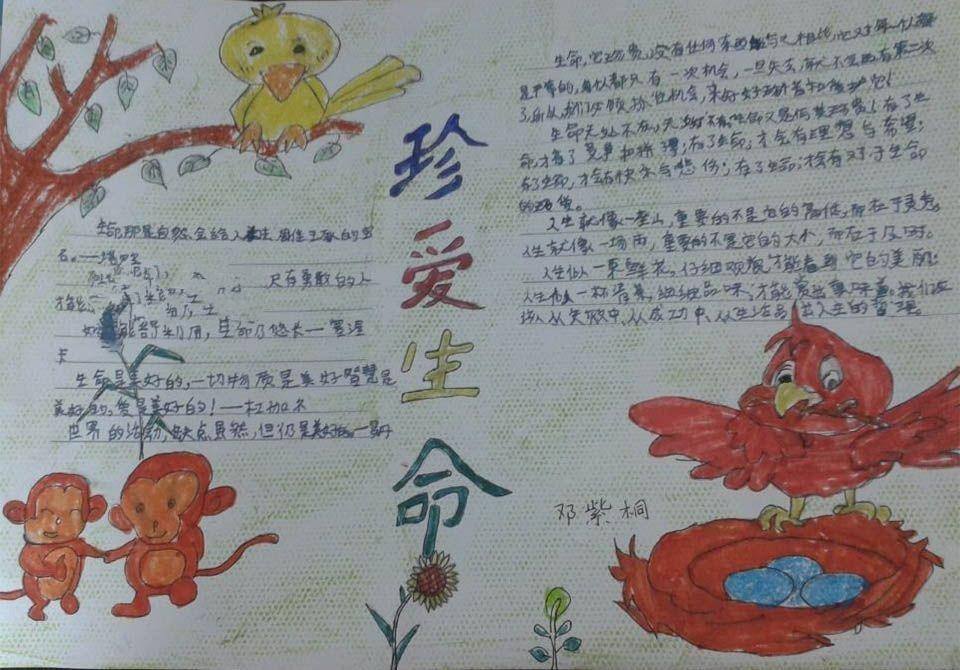 珍爱生命
生命那是自然会给人类去雕琢的宝
石。——诺贝尔
只有勇敢的人
生命乃悠长——塞涅
卡
生命是美好的,一切物质是美好智慧是
美好的,爱是美好的!——杜伽尔
世界的活动,缺点虽然,但仍是美好的——
生命,它珍贵,没有任何东西能与之相比,它对每一个人都
是平等的,每人都只有一次机会,一旦失去,就不会再有第二次
了,所以,我们必须抓住机会,来好好珍惜和维护它!
生命无处不在,无时不有,生命又是何其珍贵!有了生
命,才有了竞争和
有了生命,才会有理想与希望;
有了生命,才会有快乐与悲伤;有了生命,才有对于生命
的珍贵。
人生就像一座山,重要的不是它的高低,而在于灵秀。
人生就像一场雨,重要的不是它的大小,而在于及时。
人生似一束鲜花,仔细观赏,才能看到它的美丽;
人生似一杯清茶,细细品味,才能
我们应
该从失败中、从成功中、从生活品出人生的哲理。
邓紫桐